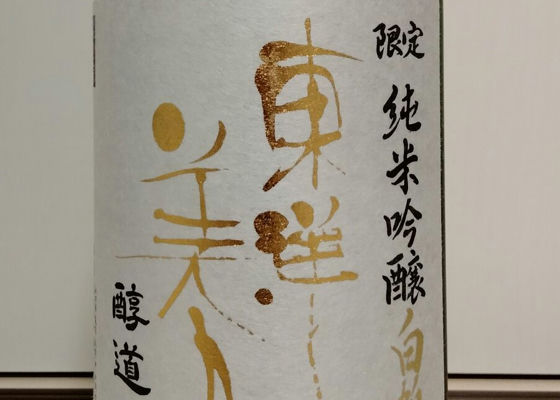 限定 純米吟醸 白
東洋
美人
醇道